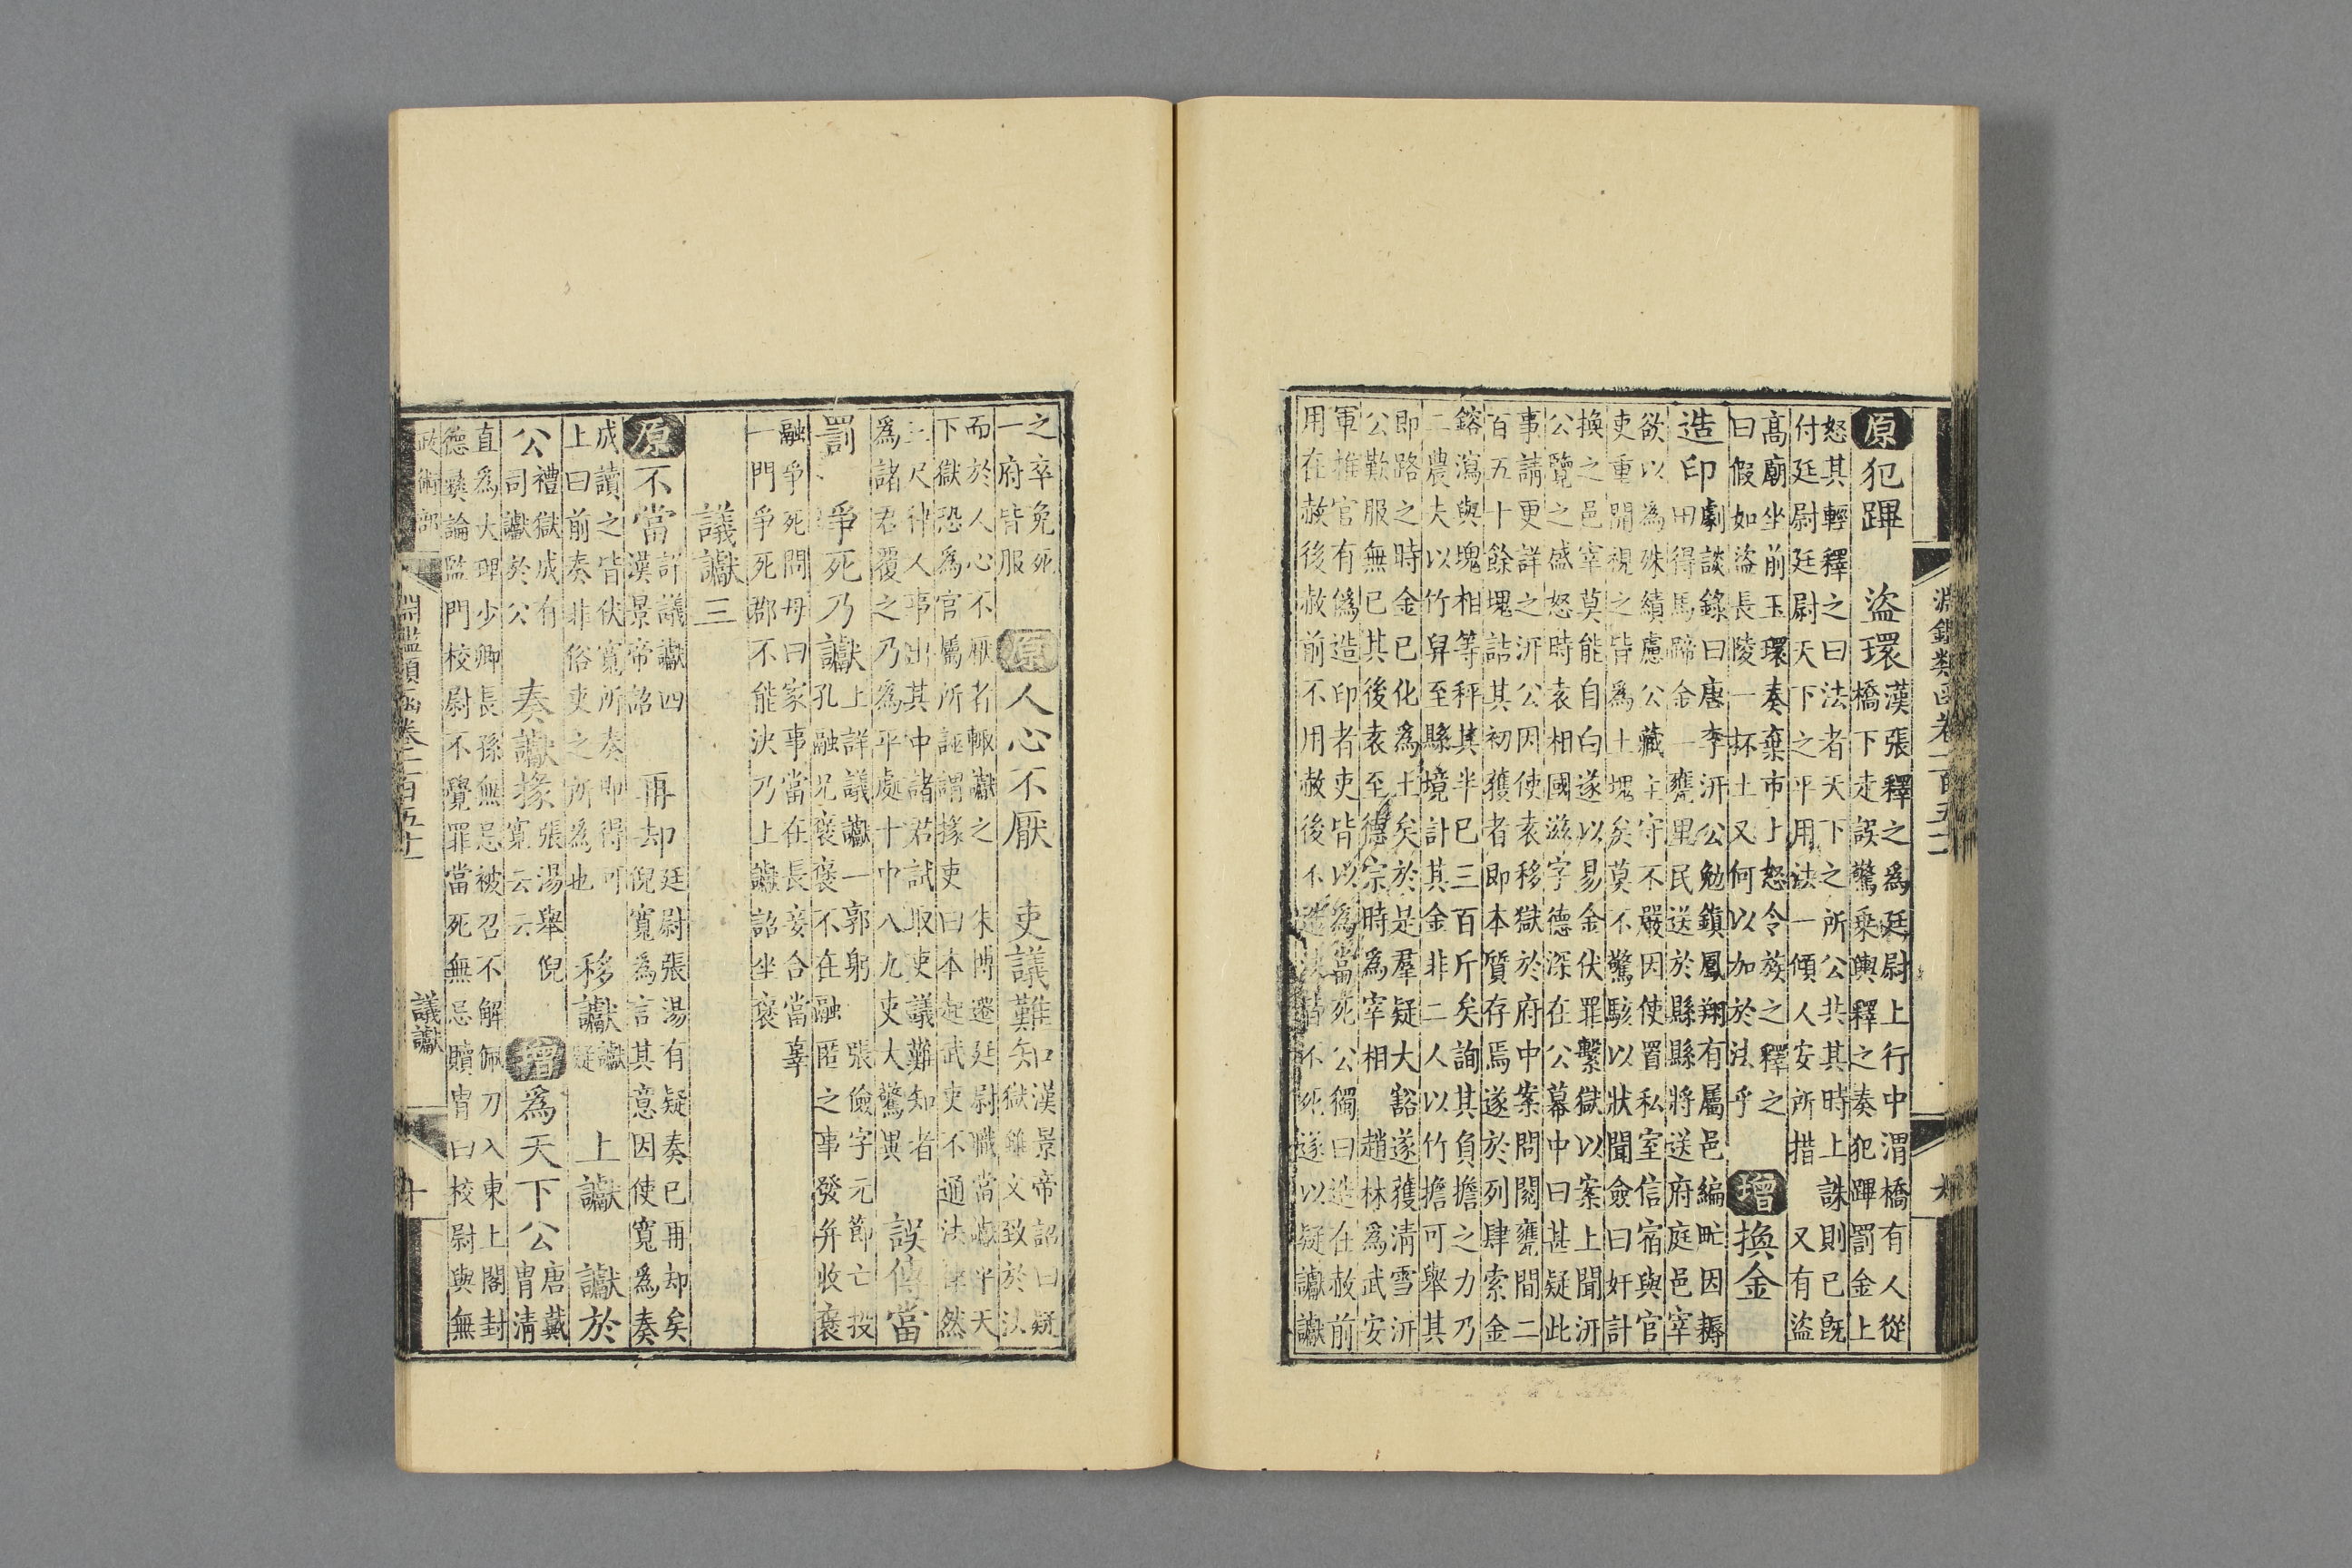 淵鑑類函卷一百五十一 九
原 犯蹕 盜環 漢張釋之為廷尉上行中渭橋有人從
橋下走誤驚乗輿釋之奏犯蹕罰金上
怒其輕釋之曰法者天下之所公共其時上誅則已既
付廷尉廷尉天下之平用法一傾人安所措 又有盜
高廟坐前玉環奏棄市上怒令族之釋之
曰假如盜長陵一杯土又何以加於法乎 增 換金
造印 劇談錄曰唐李汧公勉鎮鳳翔有屬邑編甿因耨
田得馬蹄金一甕里民送於縣縣將送府庭邑宰
欲以為殊績慮公藏主守不嚴因使置私室信宿與官
吏重開視之皆為土塊矣莫不驚駭以狀聞僉曰奸計
換之邑宰莫能自白遂以易金伏罪繫獄以案上聞汧
公覽之盛怒時袁相國滋字德深在公幕中曰甚疑此
事請更詳之汧公因使袁移獄於府中案問閱甕間二
百五十餘塊詰其初獲者即本質存焉遂於列肆索金
鎔瀉與塊相等秤其半已三百斤矣詢其負擔之力乃
二農夫以竹舁至縣境計其金非二人以竹擔可舉其
即路之時金已化為土矣於是羣疑大豁遂獲清雪汧
公歎服無已其後袁至德宗時為宰相 趙林為武安
軍推官有偽造印者吏皆以為當死公獨曰造在赦前
用在赦後赦前不用赦後不造法皆不死遂以疑讞讞
之卒免死
一府皆服 原 人心不厭 吏議難知 漢景帝詔曰疑
獄雖文致於法
而於人心不厭者輒讞之 朱博遷廷尉職當讞平天
下獄恐為官屬所誣謂掾吏曰本起武吏不通法律然
三尺律人事出其中諸君試取吏議難知者
為諸君覆之乃為平處十中八九吏大驚異 誤傳當
罰 爭死乃讞 上詳議讞一郭躬 張儉字元節亡投
孔融兄褒褒不在融匿之事發并收褒
融爭死問母曰家事當在長妾合當辜
一門爭死郡不能決乃上讞詔坐褒
議讞三
原 不當 詳議讞四
漢景帝詔 再却 廷尉張湯有疑奏已再却矣
倪寬為言其意因使寬為奏
成讀之皆伏寬所奏即得可
上曰前奏非俗吏之所為也 移讞 讞疑 上讞 讞於
公 禮獄成有
司讞於公 奏讞掾 張湯舉倪
寬云云 增 為天下公 唐戴
冑清
直為大理少卿長孫無忌被召不解佩刀入東上閣封
德彝論監門校尉不覺罪當死無忌贖冑曰校尉與無
政術部 淵鑑類函卷一百五十一 議讞 十